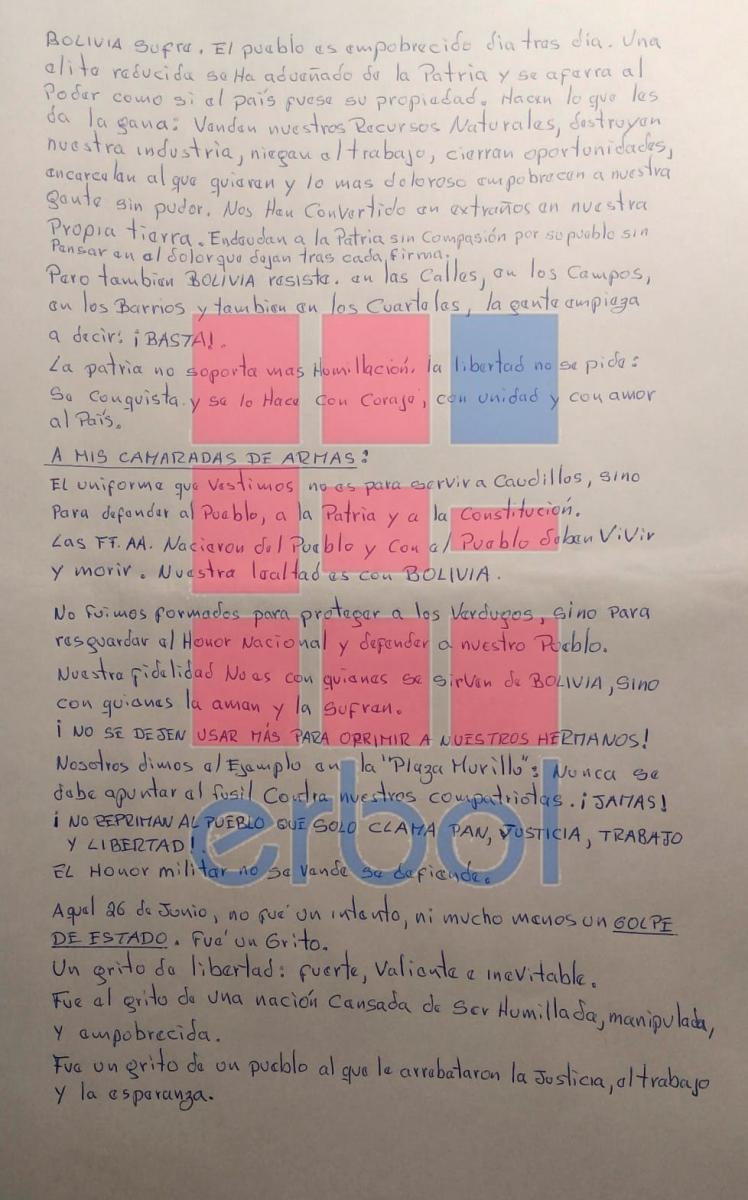 BOLIVIA Sufre. El pueblo es empobrecido dia tras día. Una
elite reducida se Ha adueñado de la Patria y se aferra al
Poder como si el país fuese su propiedad. Hacen lo que les
da la gana: Venden nuestros Recursos Naturales, destroyen
nuestra industria, niegan el trabajo, cierran oportunidades,
encarcelan al que quieren y lo mas doloroso empobrecen a nuestra
gente sin pudor. Nos Han Convertido en extraños en nuestra
Propia tierra. Endeudan a la Patria sin Compasión por su pueblo sin
Pensar en el dolor que dejan tras cada firma.
Pero tambien BOLIVIA resiste. en las Calles, en los Campos,
en los Barrios y tambien en los Cuarteles, la gente empieza
a decir: ¡BASTA!.
La patria no soporta mas Humillación. la libertad no se pide:
Se conquista y se lo Hace Con Coraje, con unidad y con amor
al País.
A MIS CAMARADAS DE ARMAS:
El uniforme que Vestimos no es para servir a Caudillos, sino
Para defender al Pueblo, a la Patria y a la Constitución.
Las FF.AA. Nacieron del Pueblo y Con el Pueblo deben Vivir
y morir. Nuestra lealtad es con BOLIVIA.
No fuimos formados para proteger a los Verdugos, sino para
resguardar el Honor Nacional y defender a nuestro Pueblo.
Nuestra fidelidad No es con quienes se sirven de BOLIVIA, sino
con quienes la aman y la Sufren.
¡ NO SE DEJEN USAR MÁS PARA OPRIMIR A NUESTROS HERMANOS!
Nosotros dimos el Ejemplo en la "Plaza Murillo": Nunca se
debe apuntar el fusil Contra nuestros compatriotas. ¡JAMAS!
¡ NO REPRIMAN AL PUEBLO QUE SOLO CLAMA PAN, JUSTICIA, TRABAJO
Y LIBERTAD!.
EL Honor militar no se Vende se defiende.
erbol
Aquel 26 de Junio, no fue' un intento, ni mucho menos un GOLPE
DE ESTADO. Fue' un Grito.
Un grito de libertad: fuerte, Valiente e inevitable.
Fue el grito de una nación Cansada de Ser Humillada, manipulada,
y empobrecida.
Fue un grito de un pueblo al que le arrebataron la Justicia, el trabajo
y la esperanza.